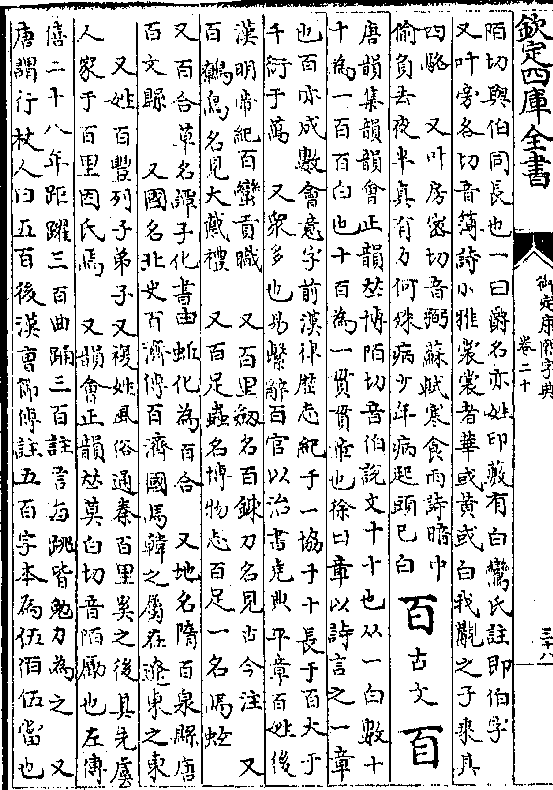 欽定四庫全書
御定康熙字典
卷二十
三十八
陌切與伯同長也一曰爵名亦姓印藪有白鸞氏註即伯字
又叶旁各切音簿詩小雅裳裳者華或黃或白我覯之子乘其
四駱　又叶房密切音弼蘇軾寒食雨詩暗中
偷負去夜半真有力何殊病少年病起頭已白　百古文𦣻
唐韻集韻韻會正韻𠀤博陌切音伯說文十十也从一白數十
十為一百百白也十百為一貫貫章也徐曰章以詩言之一章
也百亦成數會意字前漢律歷志紀于一協于十長于百大于
千衍于萬　又衆多也易繫辭百官以治書堯典平章百姓後
漢明帝紀百蠻貢職　又百里劒名百鍊刀名見古今注　又
百鷊鳥名見大戴禮　又百足蟲名博物志百足一名馬蚿
又百合草名譚子化書由蚯化為百合　又地名隋百泉縣唐
百丈縣　又國名北史百濟傳百濟國馬韓之屬在遼東之東
又姓百豐列子弟子又複姓風俗通秦百里奚之後其先虞
人家于百里因氏焉　又韻會正韻𠀤莫白切音陌勵也左傳
僖二十八年距躍三百曲踊三百註言每跳皆勉力為之　又
唐謂行杖人曰五百後漢曹節傳註五百字本為伍伯伍當也